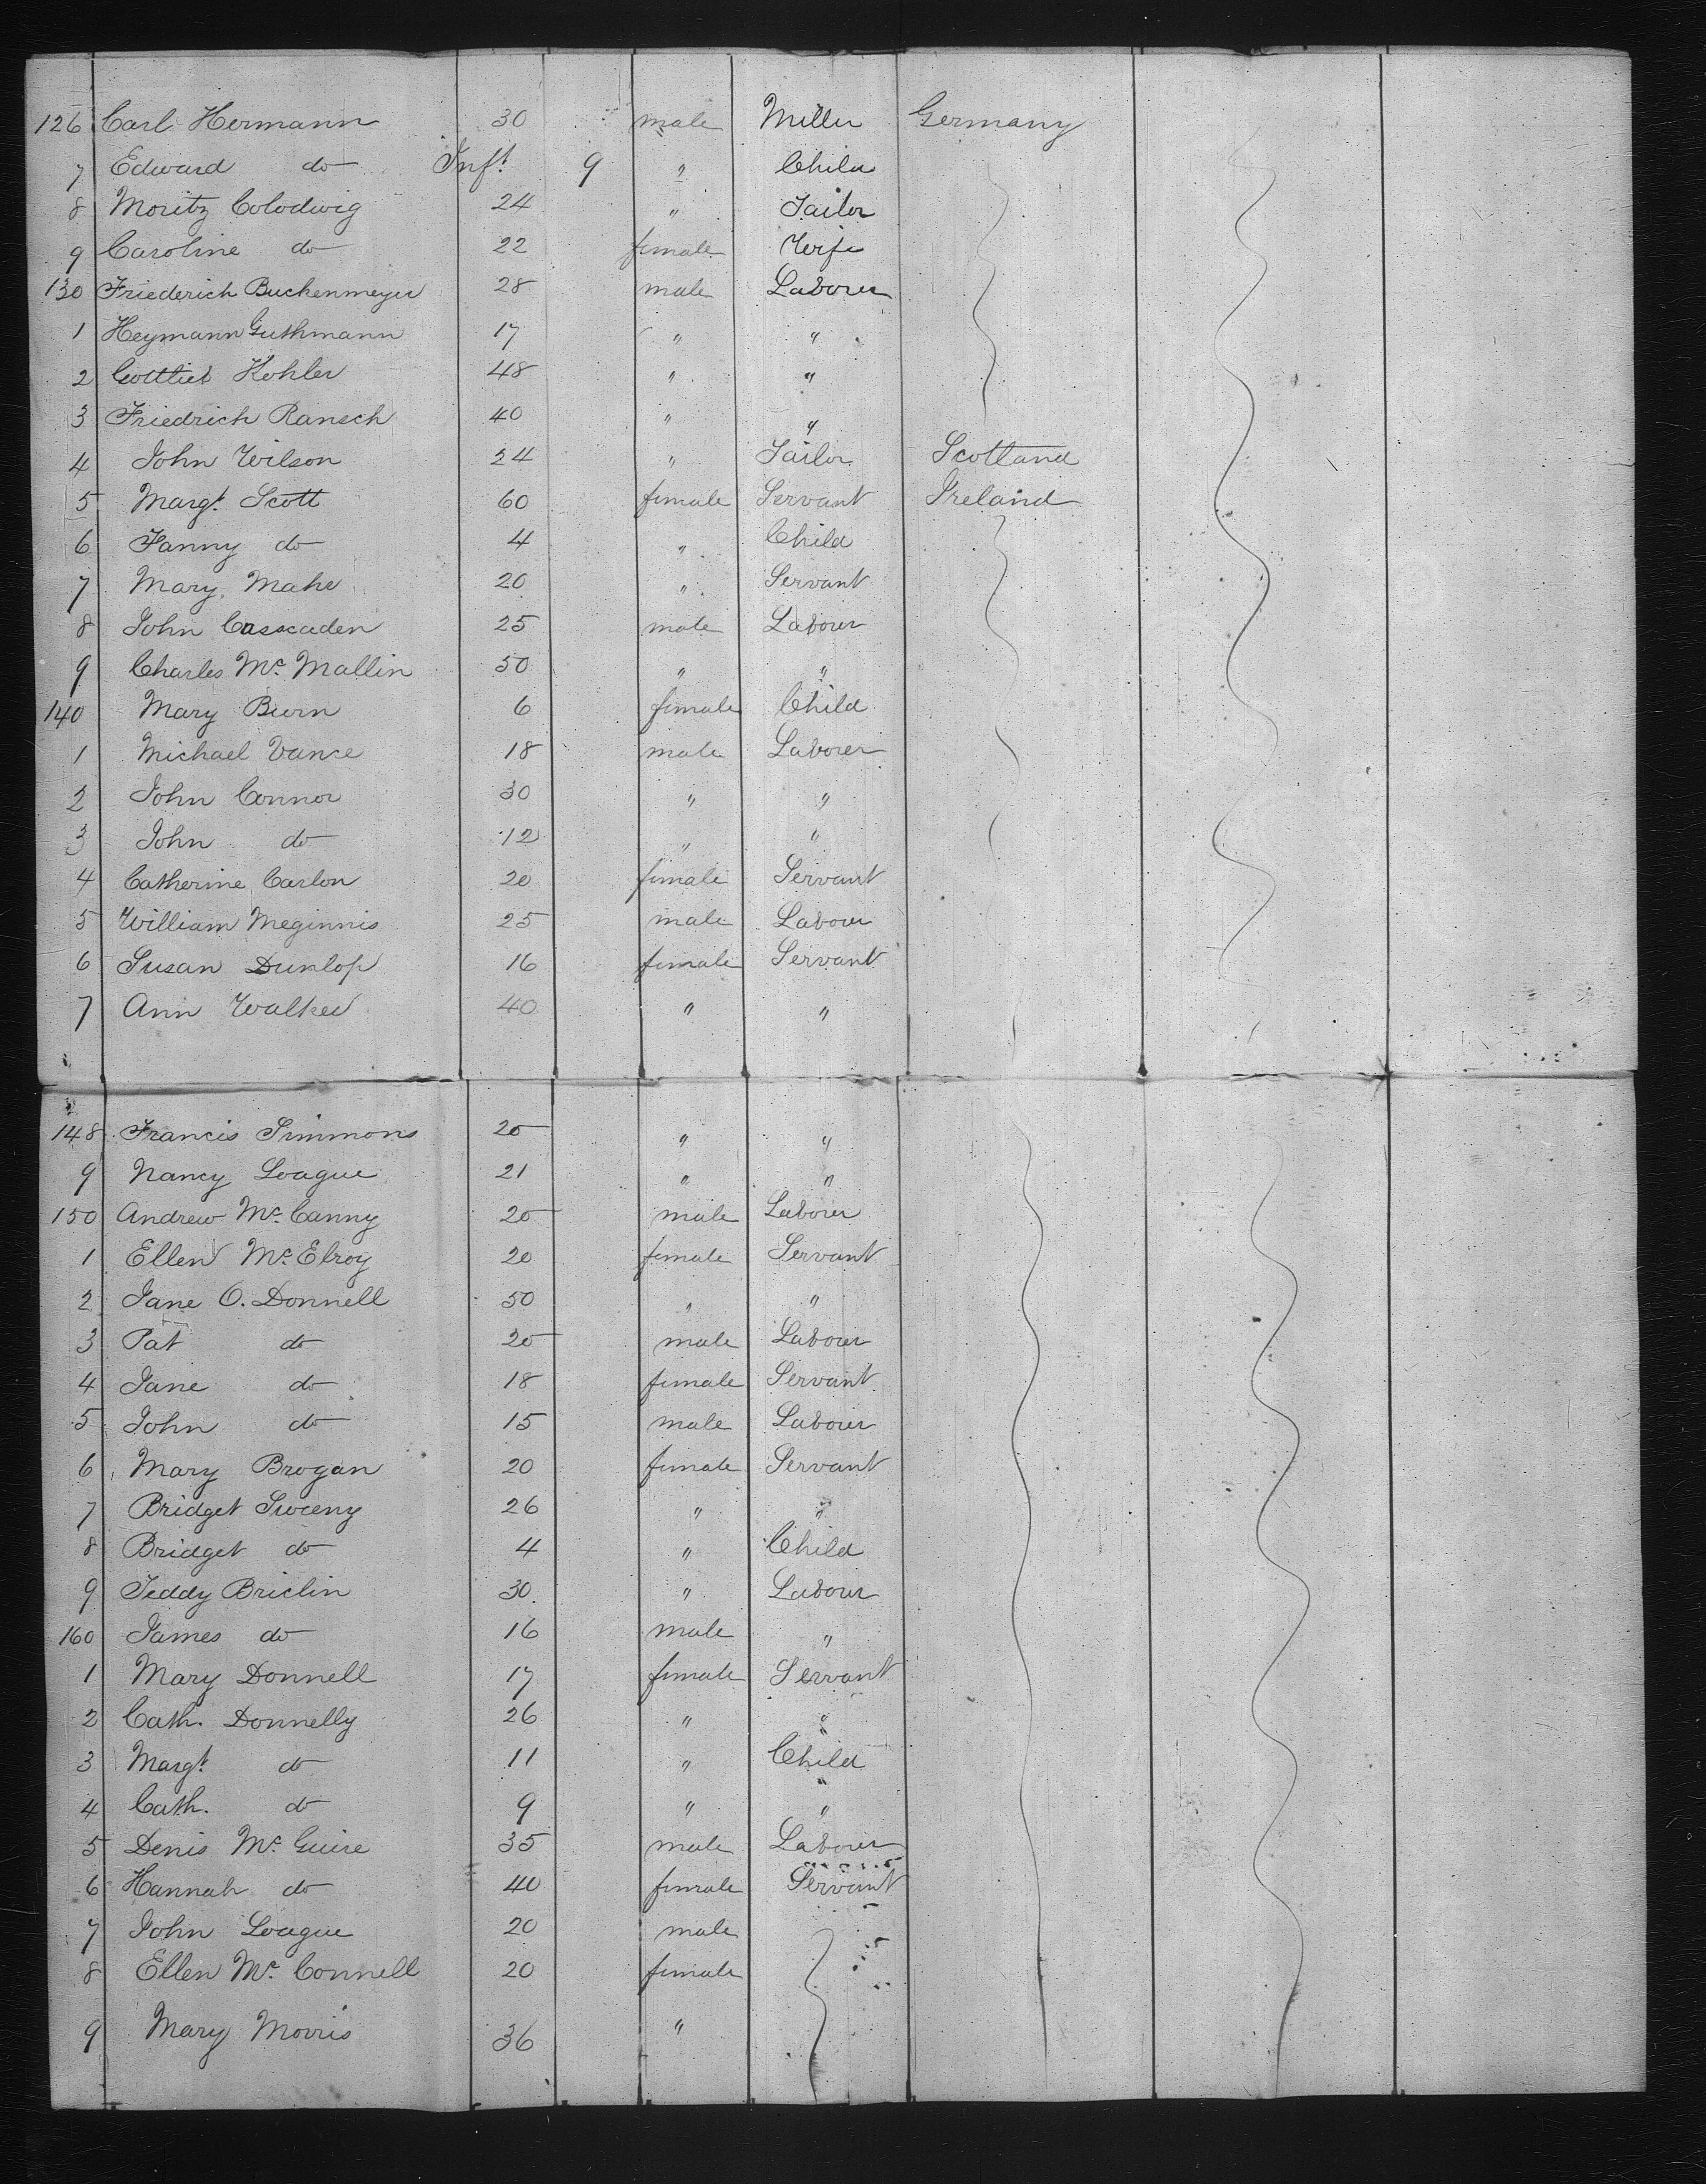 126 Carl Hermann 30 male Miller Germany
7 Edward do Inft 9 " Child
8 Moritz Colodwig 24 " Tailor
9 Caroline do 22 female Wife
130 Friederich Buckenmeyer 28 male Laborer
1 Heymann Guthmann 17 " "
2 Gottlieb Kohler 48 " "
3 Friedrich Ransch 40 " "
4 John Wilson 24 " Tailor Scotland
5 Margt. Scott 60 female Servant Ireland
6 Fanny do 4 " Child
7 Mary Mahe 20 " Servant
8 John Casscaden 25 male Laborer
9 Charles Mc. Mallin 50 " "
140 Mary Burn 6 female Child
1 Michael Vance 18 male Laborer
2 John Connor 30 " "
3 John do 12 " "
4 Catherine Carlon 20 female Servant
5 William Meginnis 25 male Laborer
6 Susan Dunlop 16 female Servant
7 Ann Walker 40 " "
148 Francis Simmons 20 " "
9 Nancy Loague 21 " "
150 Andrew Mc. Canny 20 male Laborer
1 Ellen Mc. Elroy 20 female Servant
2 Jane O. Donnell 50 " "
3 Pat do 20 male Laborer
4 Jane do 18 female Servant
5 John do 15 male Laborer
6 Mary Brogan 20 female Servant
7 Bridget Sweeny 26 " "
8 Bridget do 4 " Child
9 Teddy Briclin 30. " Laborer
160 James do 16 male "
1 Mary Donnell 17 female Servant
2 Cath. Donnelly 26 " "
3 Margt. do 11 " Child
4 Cath. do 9 " "
5 Denis Mc. Guire 35 male Laborer
6 Hannah do 40 female Servant
7 John Loague 20 male
8 Ellen Mc. Connell 20 female
9 Mary Morris 36 "